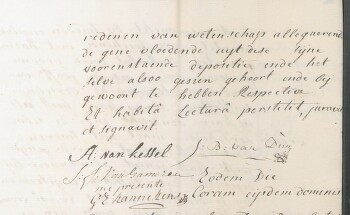 redenen van wetenschap allegnerende
de gene vloedende uyt dese sijne
voorenstaende depositie ende het
selve alsoo gesien gehoort ende bij
gewoont te hebben Respective
Et habitâ Lecturâ perstitit, juravit
et signavit
A: van kessel J: B: van Din
Eodem Die
me presente
Coram eijsdem domenis